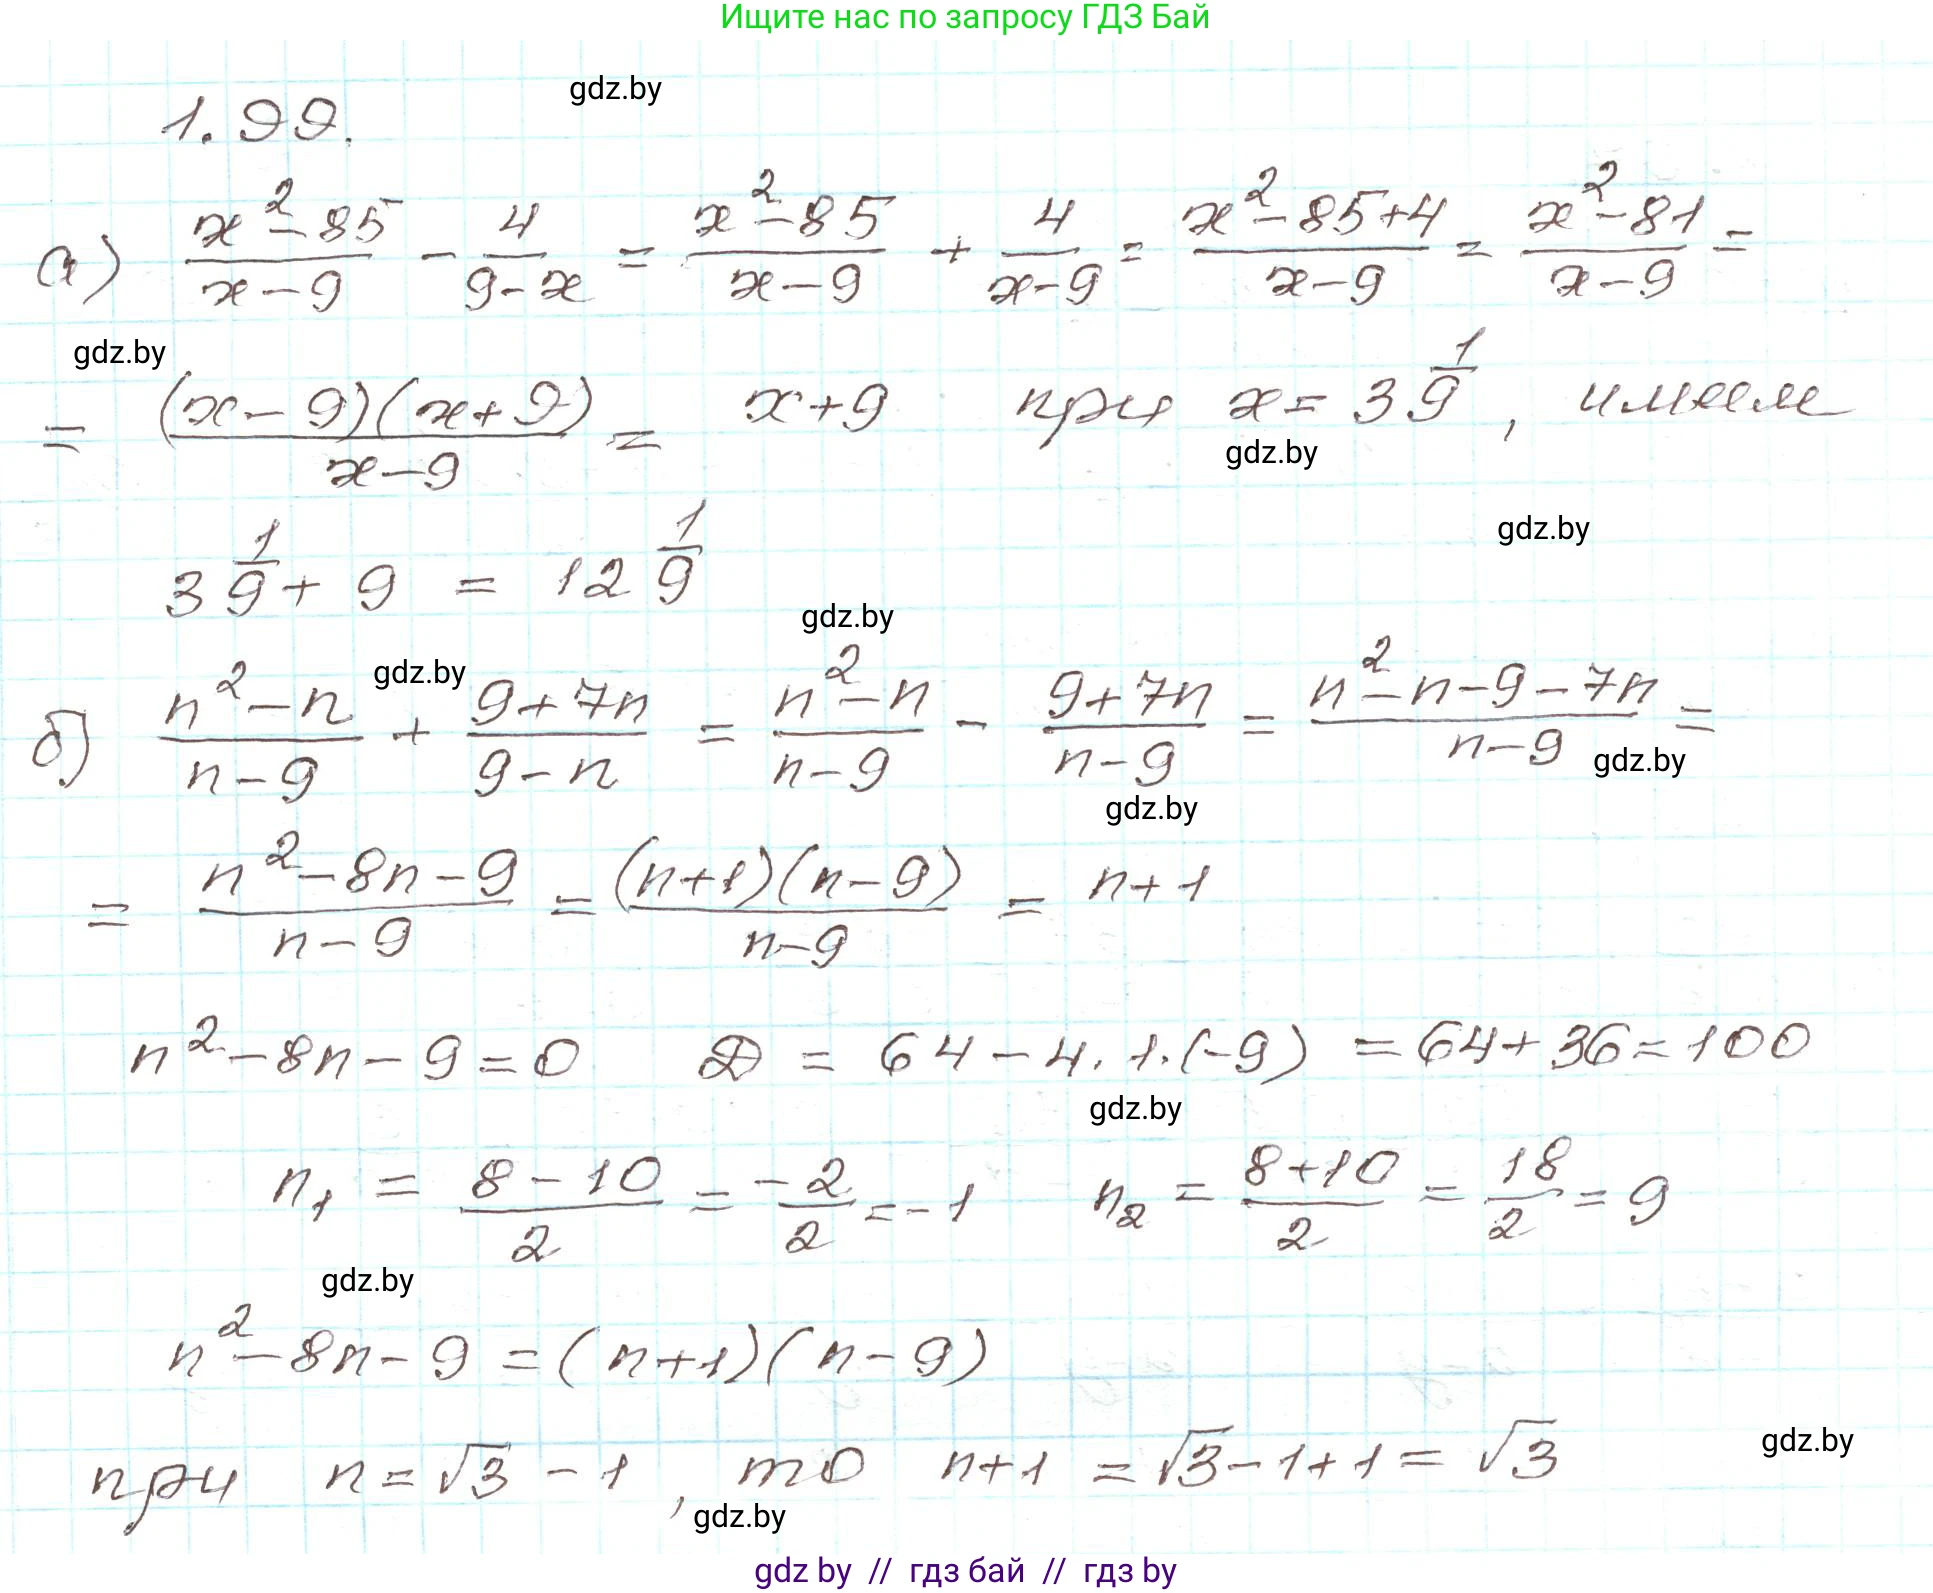 Ищите нас по запросу ГДЗ Бай
gdz.by
1.99.
а) (x² - 85)/(x - 9) - 4/(9 - x) = (x² - 85)/(x - 9) + 4/(x - 9) = (x² - 85 + 4)/(x - 9) = (x² - 81)/(x - 9) =
gdz.by
= ((x - 9)(x + 9))/(x - 9) = x + 9 при x = 3 1/9, имеем
gdz.by
gdz.by
3 1/9 + 9 = 12 1/9
gdz.by
gdz.by
б) (n² - n)/(n - 9) + (9 + 7n)/(9 - n) = (n² - n)/(n - 9) - (9 + 7n)/(n - 9) = (n² - n - 9 - 7n)/(n - 9) =
gdz.by
gdz.by
= (n² - 8n - 9)/(n - 9) = ((n + 1)(n - 9))/(n - 9) = n + 1
n² - 8n - 9 = 0 D = 64 - 4 · 1 · (-9) = 64 + 36 = 100
gdz.by
n₁ = (8 - 10)/2 = -2/2 = -1 n₂ = (8 + 10)/2 = 18/2 = 9
gdz.by
n² - 8n - 9 = (n + 1)(n - 9)
gdz.by
при n = √3 - 1, то n + 1 = √3 - 1 + 1 = √3
gdz.by
gdz by // гдз бай // гдз by